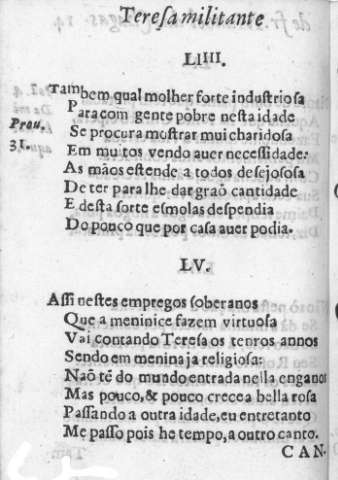 Teresa militante
LIIII.
Tambem qual molher forte industriosa
Para com gente pobre nesta idade
Prou.
Se procura mostrar mui charidosa
31.
Em muitos vendo auer necessidade:
As mãos estende a todos desejososa
De ter para lhe dar graõ cantidade
E desta sorte esmolas despendia
Do pouco que por casa auer podia.
LV.
Assi nestes empregos soberanos
Que a meninice fazem virtuosa
Vai contando Teresa os tenros annos
Sendo em menina ja religiosa:
Naõ tẽ do mundo entrada nella enganos
Mas pouco, & pouco crece a bella rosa
Passando a outra idade, eu entretanto
Me passo pois he tempo, a outro canto.
CAN.